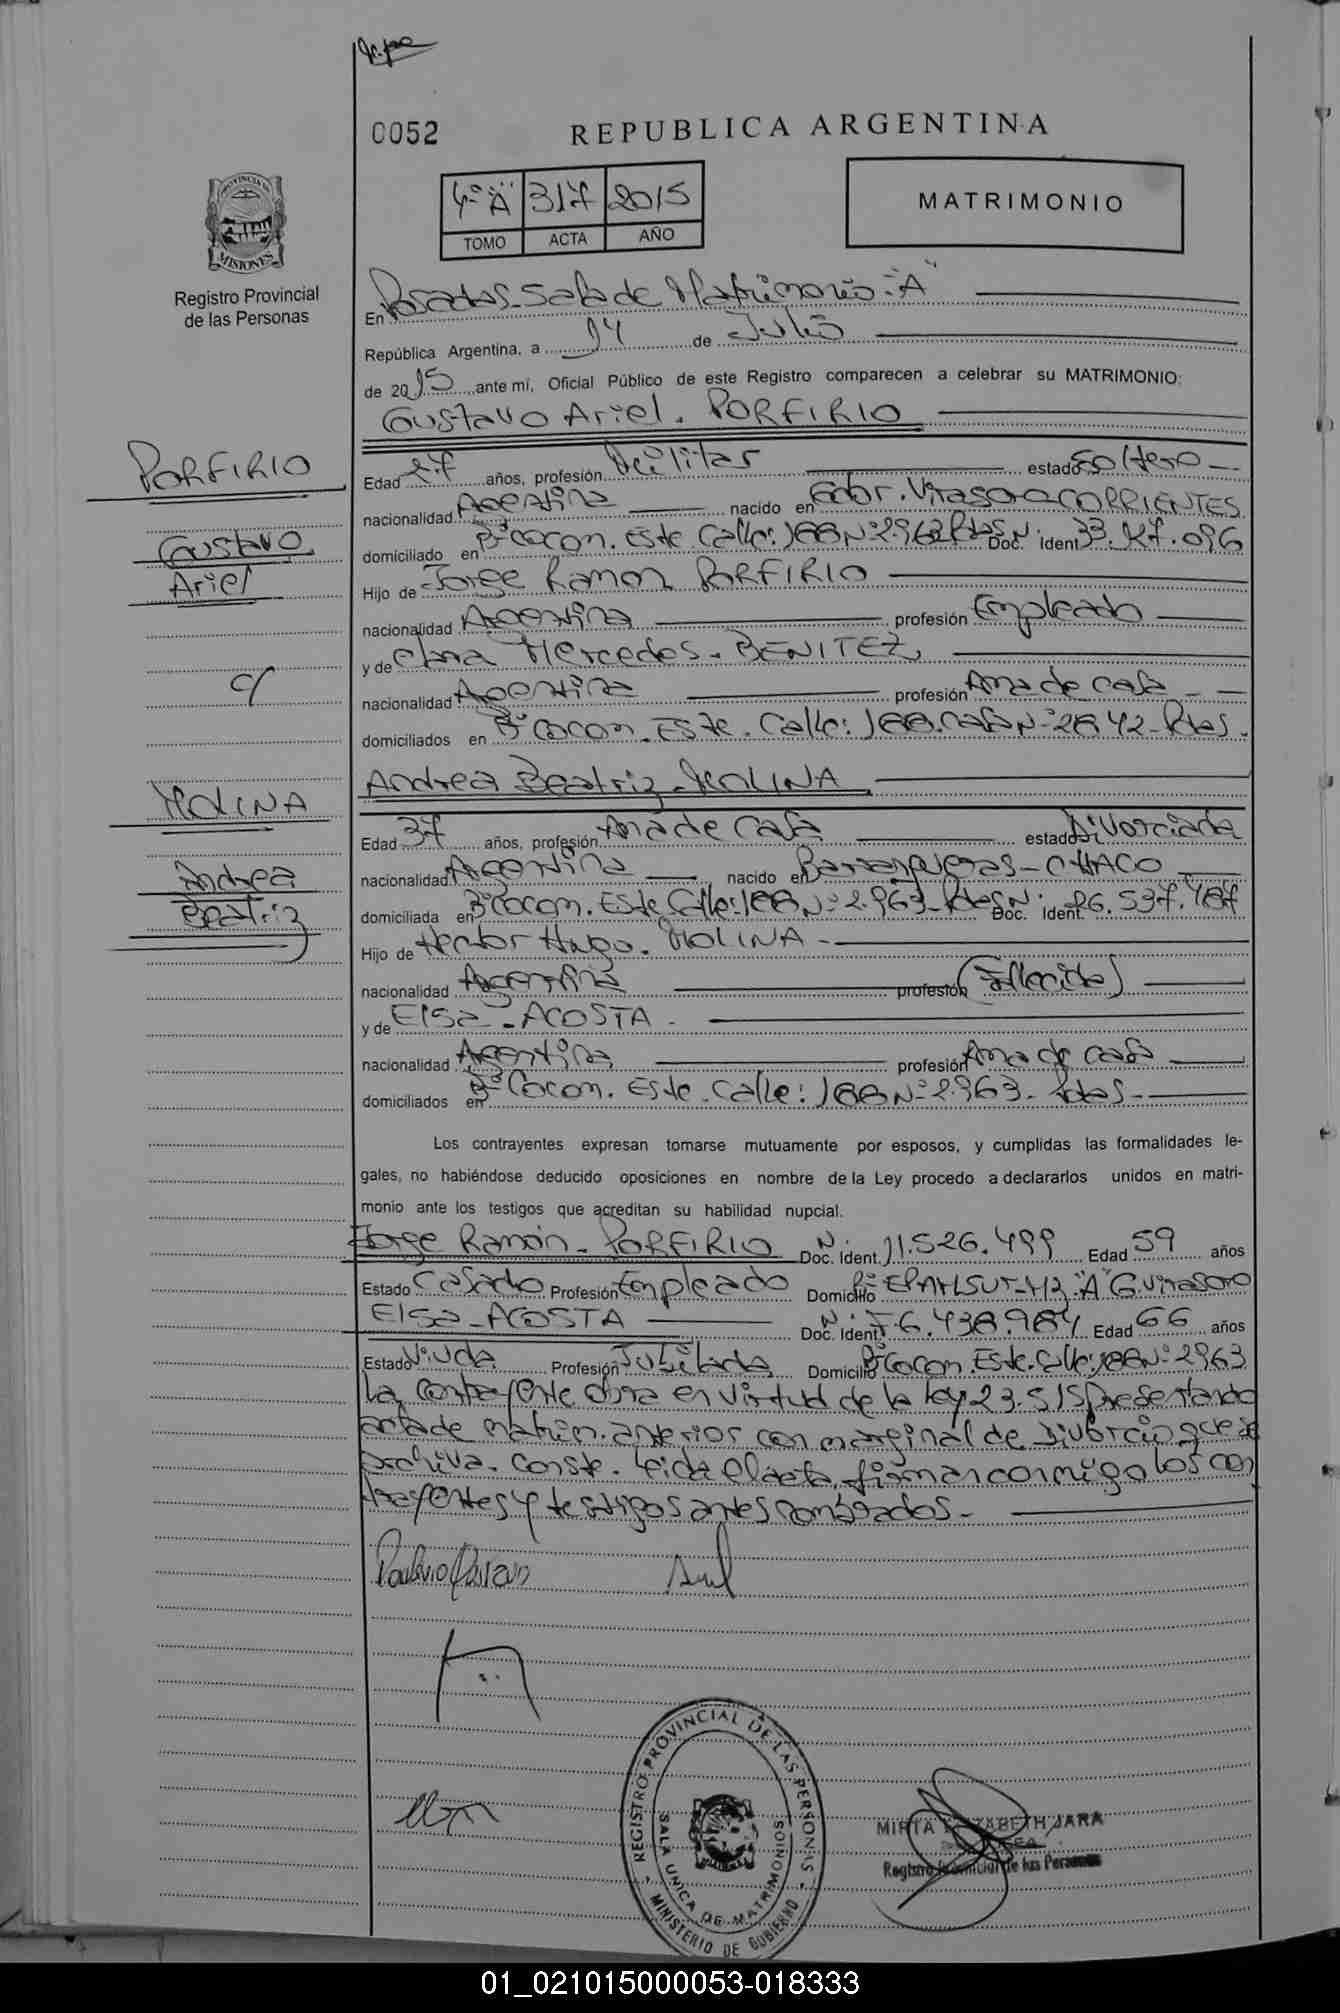 0052
REPUBLICA ARGENTINA
4º "A" 317 2015
TOMO ACTA AÑO
MATRIMONIO
PROVINCIA DE
MISIONES
Registro Provincial
de las Personas
En Posadas-Sala de Matrimonio-"A"
República Argentina, a 14 de Julio
de 2015 ante mí, Oficial Público de este Registro comparecen a celebrar su MATRIMONIO:
Gustavo Ariel. PORFIRIO
PORFIRIO
Gustavo
Ariel
c/
MOLINA
Andrea
Beatriz
Edad 27 años, profesión Militar estado Soltero
nacionalidad Argentina nacido en Gdor. Virasoro CORRIENTES
domiciliado en Bº Cocon. Este Calle: 188 Nº 2963 Pdas Doc. Ident. Nº 33.127.096
Hijo de Jorge Ramon PORFIRIO
nacionalidad Argentina profesión Empleado
y de Mercedes. BENITEZ
nacionalidad Argentina profesión Ama de casa
domiciliados en Bº Cocon. Este. Calle: 188. Casa Nº 2842- Pdas.
Andrea Beatriz MOLINA
Edad 37 años, profesión Ama de casa estado Divorciada
nacionalidad Argentina nacido en Barranqueras-CHACO
domiciliada en Bº Cocon. Este Calle: 188 Nº 2.963- Pdas Doc. Ident. Nº 26.537.487
Hijo de Hector Hugo. MOLINA-
nacionalidad Argentina profesión (Fallecido)
y de Elsa-ACOSTA-
nacionalidad Argentina profesión Ama de casa
domiciliados en Bº Cocon. Este. Calle: 188 Nº 2.963- Pdas-
Los contrayentes expresan tomarse mutuamente por esposos, y cumplidas las formalidades le-
gales, no habiéndose deducido oposiciones en nombre de la Ley procedo a declararlos unidos en matri-
monio ante los testigos que acreditan su habilidad nupcial.
Jorge Ramón- PORFIRIO Doc. Ident. Nº 11.526.499 Edad 59 años
Estado Casado Profesión Empleado Domicilio Bº "A" G. Virasoro
Elsa-ACOSTA Doc. Ident. Nº F 6.438.984 Edad 66 años
Estado Viuda Profesión Jubilada Domicilio Bº Cocon. Este. Calle: 188 Nº 2963
La contrayente obra en virtud de la ley 23.515 presentando
acta de matrim. anterior con marginal de Divorcio que se
archiva. Conste. Leida el acta, firman conmigo los con
trayentes y testigos antes nombrados-
REGISTRO PROVINCIAL DE LAS PERSONAS
SALA UNICA DE MATRIMONIOS
MINISTERIO DE GOBIERNO
MIRTA ELIZABETH JARA
Registro Provincial de las Personas
01_021015000053-018333